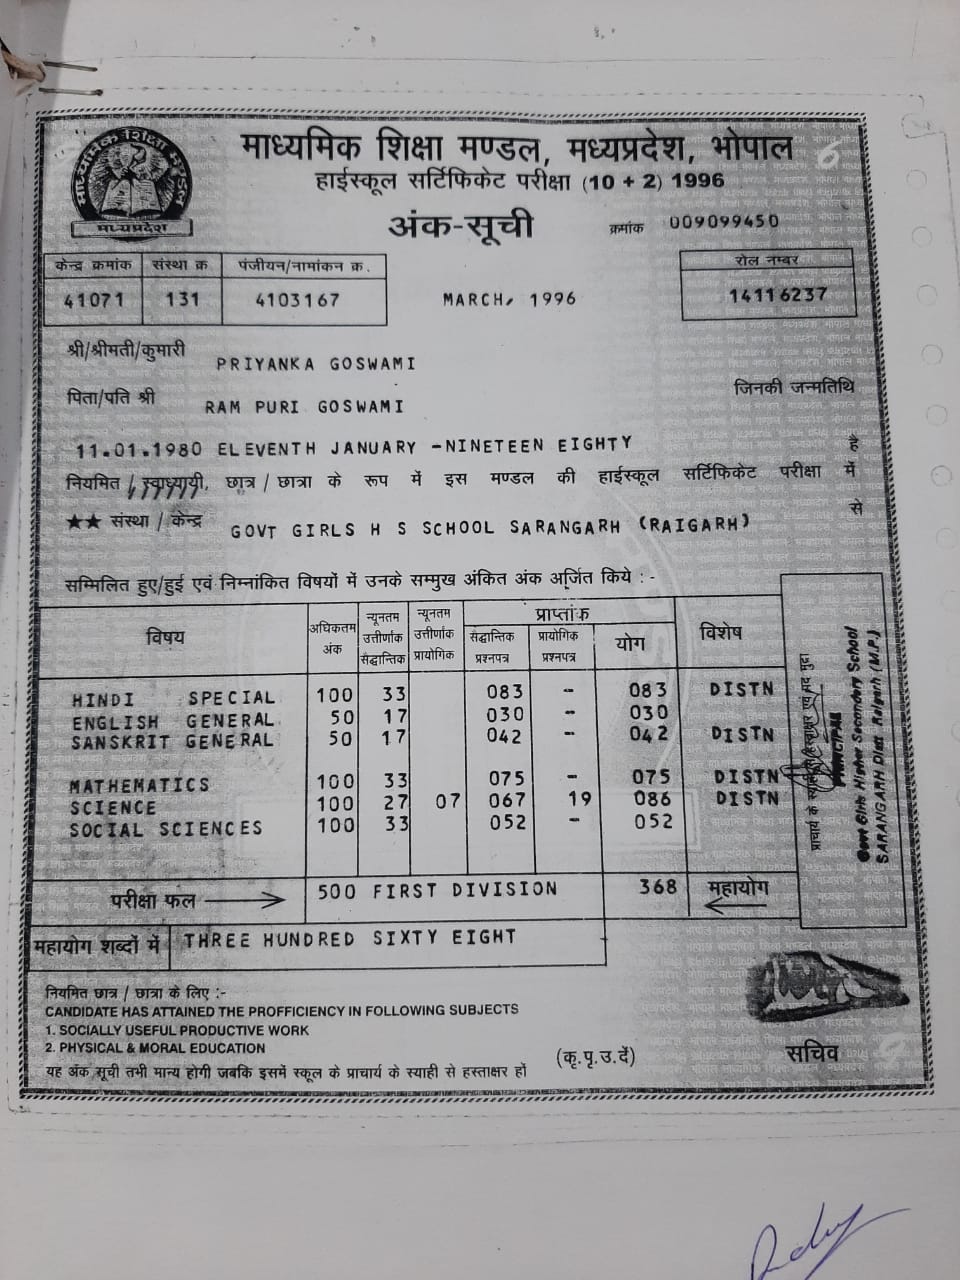 माध्यमिक शिक्षा मण्डल
मध्यप्रदेश
माध्यमिक शिक्षा मण्डल, मध्यप्रदेश, भोपाल
हाईस्कूल सर्टिफिकेट परीक्षा (10 + 2) 1996
अंक-सूची
क्रमांक 009099450
केन्द्र क्रमांक संस्था क्र पंजीयन/नामांकन क्र.
41071 131 4103167
MARCH, 1996
रोल नम्बर
14116237
श्री/श्रीमती/कुमारी PRIYANKA GOSWAMI
पिता/पति श्री RAM PURI GOSWAMI जिनकी जन्मतिथि
11.01.1980 ELEVENTH JANUARY -NINETEEN EIGHTY है
नियमित / स्वाध्यायी, छात्र / छात्रा के रूप में इस मण्डल की हाईस्कूल सर्टिफिकेट परीक्षा में
★★ संस्था / केन्द्र GOVT GIRLS H S SCHOOL SARANGARH (RAIGARH) से
सम्मिलित हुए/हुई एवं निम्नांकित विषयों में उनके सम्मुख अंकित अंक अर्जित किये : -
विषय अधिकतम अंक न्यूनतम उत्तीर्णांक सैद्धान्तिक न्यूनतम उत्तीर्णांक प्रायोगिक प्राप्तांक सैद्धान्तिक प्रश्नपत्र प्रायोगिक प्रश्नपत्र योग विशेष
HINDI SPECIAL 100 33 083 - 083 DISTN
ENGLISH GENERAL 50 17 030 - 030
SANSKRIT GENERAL 50 17 042 - 042 DISTN
MATHEMATICS 100 33 075 - 075 DISTN
SCIENCE 100 27 07 067 19 086 DISTN
SOCIAL SCIENCES 100 33 052 - 052
परीक्षा फल 500 FIRST DIVISION 368 महायोग
महायोग शब्दों में THREE HUNDRED SIXTY EIGHT
प्राचार्य के स्याही से हस्ताक्षर एवं पद मुद्रा
PRINCIPAL
Govt Girls Higher Secondary School
SARANGARH Distt Raigarh (M.P.)
नियमित छात्र / छात्रा के लिए :-
CANDIDATE HAS ATTAINED THE PROFFICIENCY IN FOLLOWING SUBJECTS
1. SOCIALLY USEFUL PRODUCTIVE WORK
2. PHYSICAL & MORAL EDUCATION
यह अंक सूची तभी मान्य होगी जबकि इसमें स्कूल के प्राचार्य के स्याही से हस्ताक्षर हों
(कृ.पृ.उ.दें)
सचिव